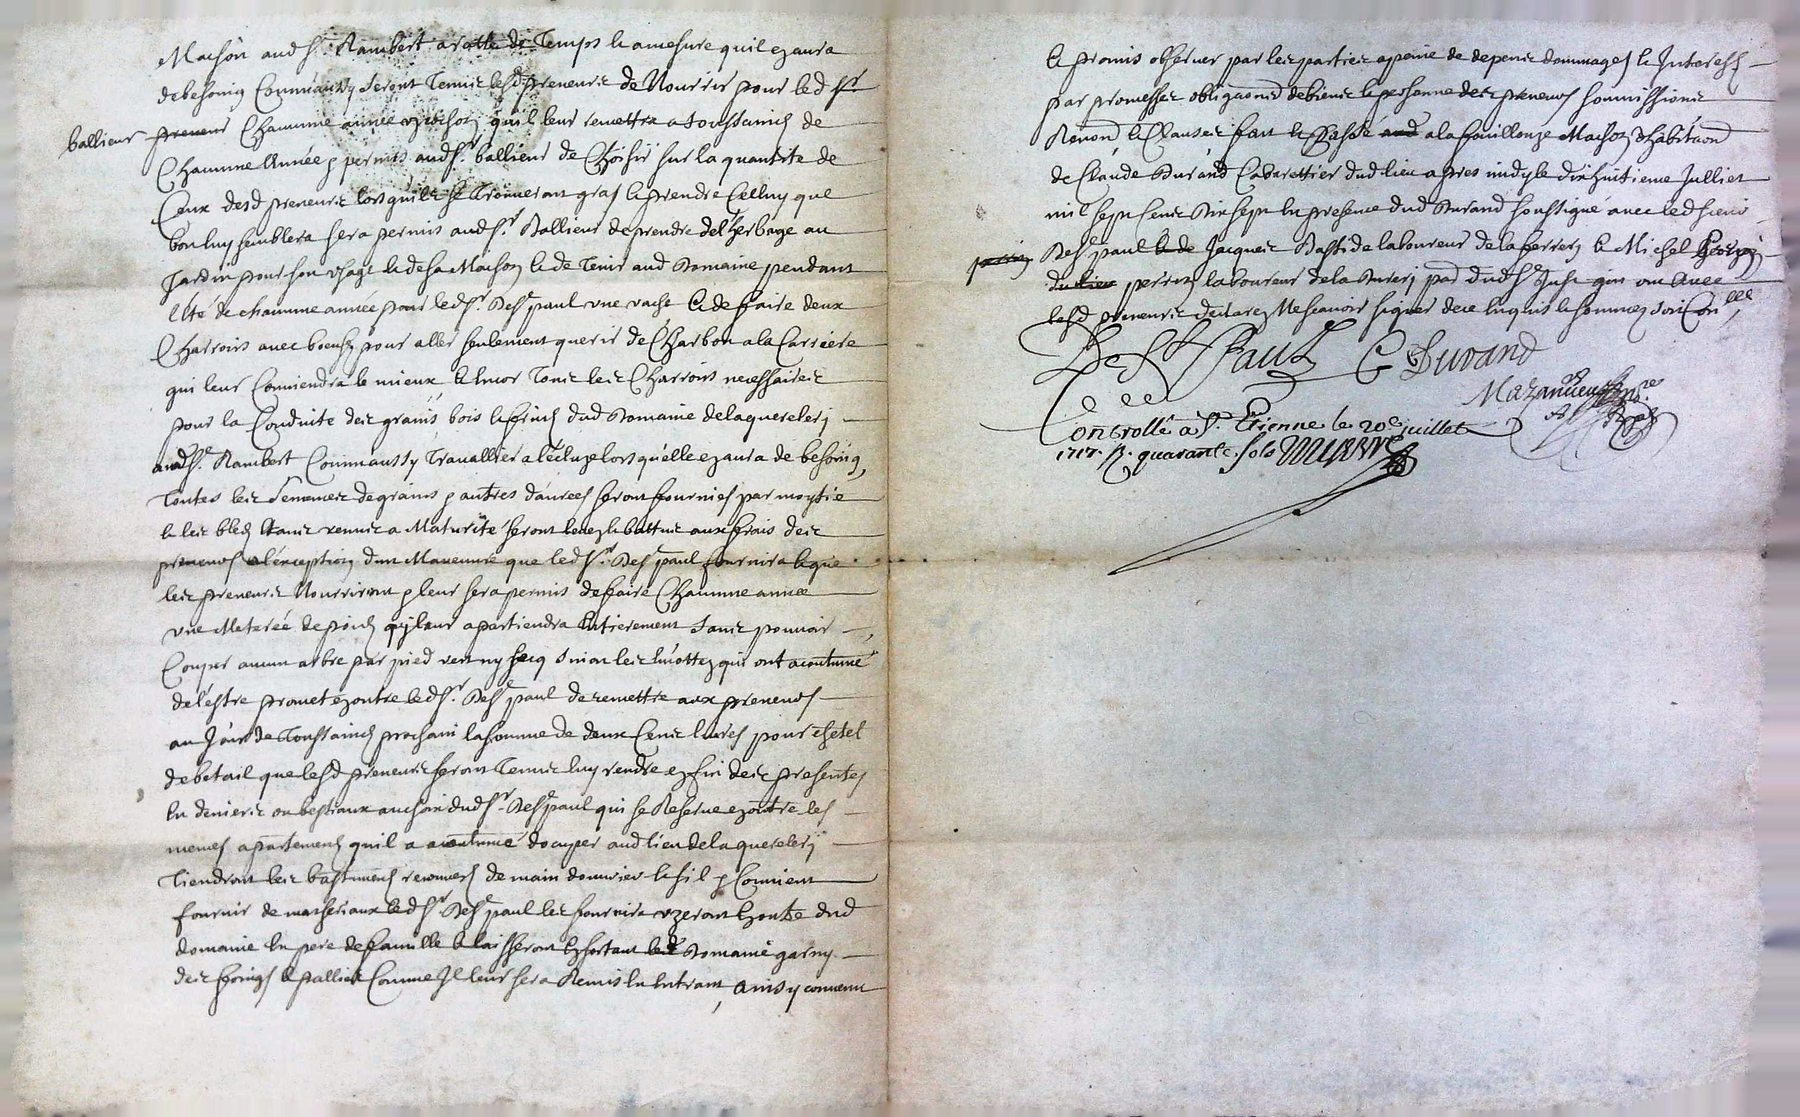 Maison aud Sr. Rambert a ratte de Temps & a mesure quil ezaura
de besoing Comm'aussy seront Tenus lesd preneurs de Nourrir pour led Sr.
ballieur preneur Chacunne année vz cochon quil leur remettra a toussaincts de
Chacunne Année & permis aud Sr. ballieur de Choisir sur la quantite de
Ceux desd preneurs lors quils se Trouveront gras & prendre Celluy que
bon luy semblera sera permis aud Sr. Ballieur de prendre del'herbage au
Jardin pour son usage & de sa Maison & de Tenir aud Domaine pendant
l'ete de chacunne année pour led Sr. De St paul une vache & de faire deux
Charrois avec boeufs pour aller seulement querir de Charbon a la Carriere
qui leur Conviendra le mieux & Encor Tous les Charrois necessaires
pour la Conduite des grains bois & fruits dud Domaine de la querelery
aud Sr. Rambert Comm'aussy Travallier a l'ecluze lors qu'elle ezaura de besoing,
Toutes les semences de grains & autres danrees seront fournies par moytié
& les bleds Etans venus a Maturité seront levez & battus aux frais des
preneurs a l'exception d'un Maneuvre que led Sr. De St paul fournira & que
les preneurs Nourriront & leur sera permis de faire Chacunne année
une Meterée de poids qui leur apartiendra Entierement sans pouvoir
Couper aucun arbre par pied vert ny secq sinon les qui ont acoutumé
de l'estre promet ezoutre led Sr. De St paul de remettre aux preneurs
au Jour de Toussaincts prochain la somme de deux Cens livres pour chetel
de betail que lesd preneurs seront Tenus luy rendre ez fin des presentes
En deniers ou bestiaux au choix dud Sr. De St paul qui se Reserve ezoutre les
memes apartements quil a acoutumé d'ocuper aud lieu de la querelery
Tiendront les bastiments recouverts de main d'ouvrier & s'il y Convient
fournir de matheriaux led Sr. De St paul les fournira uzeront Ezoutre dud
domaine En pere de famille & laisseront Ezsortant led Domaine garny
des foings & pallies Comme Il leur sera Remis En Entrant, ainsy convenu
& promis observer par les parties a peine de depens dommages & Interests
par promesses obligaons de biens & personne des preneurs soumissions
Renond & Clauses fait & Passé aud a la fouillouze Maison d'habitaon
de Claude Durand Cabarettier dud lieu apres midy le dix huitieme Julliet
mil sept Cens Dix sept En presence dud Durand soussigné avec led sieur
De St paul & de Jacques Bastide laboureur de la ferrery & Michel
du lieu perrin laboureur de la Dusery pnt dud St Just qui ont Avec
lesd preneurs declarez Ne scavoir signer de ce Enquis & sommez soit Conllé,
De St Paul C Durand
Mazenieu
Controllé à St. Etienne le 20e juillet
1717. R. quarante sols